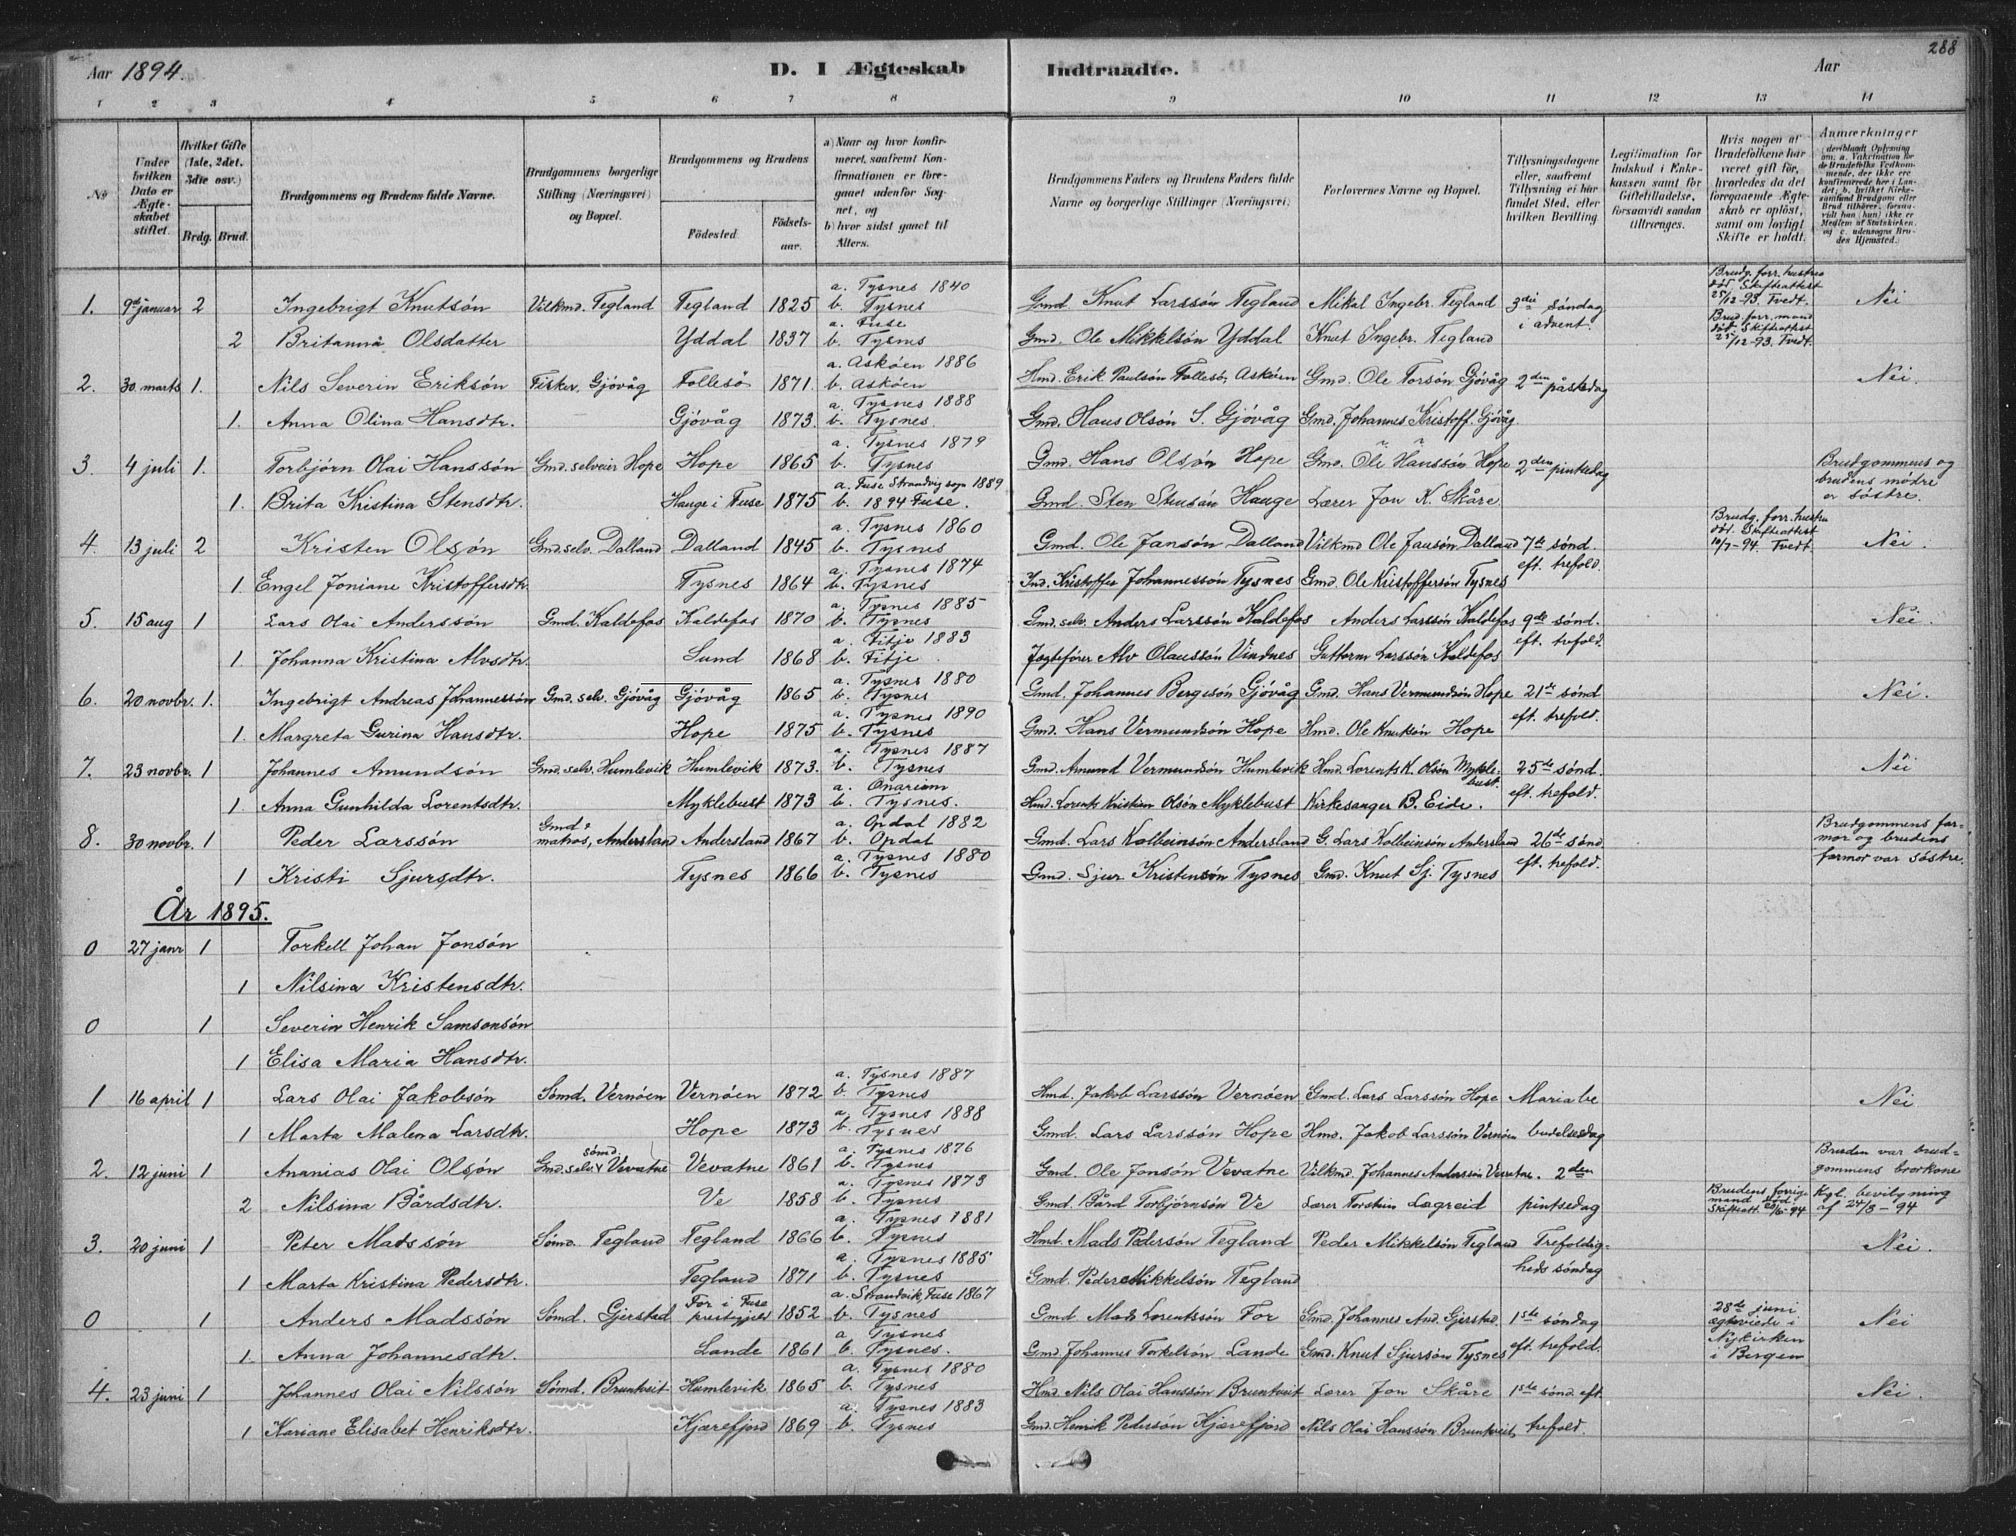 Aar 1894. D. I Ægteskab Indtraadte. Aar 288
1 2 3 4 5 6 7 8 9 10 11 12 13 14
No
Under hvilken Dato er Ægteskabet stiftet.
Hvilket Gifte (1ste, 2det, 3die osv.)
Brdg. Brud.
Brudgommens og Brudens fulde Navne.
Brudgommens borgerlige Stilling (Næringsvei) og Bopæl.
Brudgommens og Brudens
Fødested. Fødselsaar.
a) Naar og hvor konfirmeret, saafremt Konfirmationen er foregaaet udenfor Sognet, og
b) hvor sidst gaaet til Alters.
Brudgommens Faders og Brudens Faders fulde Navne og borgerlige Stillinger (Næringsvei).
Forlovernes Navne og Bopæl.
Tillysningsdagene eller, saafremt Tillysning ei har fundet Sted, efter hvilken Bevilling.
Legitimation for Indskud i Enkekassen samt for Giftetilladelse, forsaavidt saadan tiltrænges.
Hvis nogen af Brudefolkene har været gift før, hvorledes da det foregaaende Ægteskab er opløst, samt om lovligt Skifte er holdt.
Anmærkninger (deriblandt Oplysning om: a. Vakcination for de Brudefolks Vedkommende, der ikke ere konfirmerede her i Landet; b. hvilket Kirkesamfund Brudgom eller Brud tilhører, forsaavidt han (hun) ikke er Medlem af Statskirken, og c. udensogns Brudes Hjemsted.)
1. 9de januar 2 Ingebrigt Knutsøn Vilkmd. Tegland Tegland 1825 a. Tysnes 1840 b. Tysnes Gmd Knut Larssøn Tegland Mikal Ingebr. Tegland 3die søndag i advent. Brudg. forr. hustru død. Skifteattest 25/12-93. Tvedt. Nei
2 Britanna Olsdatter Yddal 1837 a. Fuse b. Tysnes Gmd. Ole Mikkelsøn Yddal Knut Ingebr. Tegland Brud. forr. mand død. Skifteattest 25/12-93. Tvedt.
2. 30 marts 1. Nils Severin Eriksøn Fisker, Gjøvåg Follesø 1871. a. Askøen 1886 b. Askøen Hmd. Erik Paulsøn Follesø, Askøen Gmd. Ole Torsøn Gjøvåg 2den påskedag Nei.
1. Anna Olina Hansdtr. Gjøvåg 1873. a. Tysnes 1888 b. Tysnes. Gmd. Hans Olsøn S. Gjøvåg Gmd. Johannes Kristoff. Gjøvåg
3. 4 juli 1. Torbjørn Olai Hanssøn Gmd. selveier Hope Hope 1865 a. Tysnes 1879 b. Tysnes Gmd. Hans Olsøn Hope Gmd. Ole Hanssøn Hope 2den pintsedag Brudgommens og brudens mødre er søstre.
1. Brita Kristina Stensdtr. Hauge i Fuse 1875 a. Fuse Strandvig sogn 1889 b. 1894 Fuse. Gmd. Sten Hauge Lærer Jon K. Skåre
4. 13 juli 2 Kristen Olsøn Gmd. selv. Dalland Dalland 1845 a. Tysnes 1860 b. Tysnes Gmd. Ole Jansøn Dalland Vilkmd Ole Jansøn Dalland 7de sønd. eft. trefold. Brudg. forr. hustru død. Skifteattest 10/7-94. Tvedt. Nei.
1. Engel Joniane Kristoffersdtr. Tysnes 1864 a. Tysnes 1874 b. Tysnes Ind. Kristoffer Johannessøn Tysnes Gmd. Ole Kristoffersøn Tysnes
5. 15 aug 1 Lars Olai Anderssøn Gmd. Kaldefos Kaldefos 1870 a. Tysnes 1885 b. Tysnes Gmd. selv. Anders Larssøn Kaldefos Anders Larssøn Kaldefos 9de sønd. eft. trefold. Nei.
1. Johanna Kristina Alvsdtr. Lund 1868 a. Fitje 1883 b. Fitje. Jægtefører Alv Olaussøn Vindnes Guttorm Larssøn Kaldefos
6. 20 novbr. 1. Ingebrigt Andreas Johannessøn Gmd. selv. Gjøvåg Gjøvåg 1865 a. Tysnes 1880 b. Tysnes Gmd. Johannes Bergesøn Gjøvåg Gmd. Hans Vermundsøn Hope 21de sønd eft. trefold. Nei.
1. Margreta Gurina Hansdtr. Hope 1875 a. Tysnes 1890 b. Tysnes Gmd. Hans Vermundsøn Hope Hmd. Ole Knutsøn Hope
7. 23 novbr. 1 Johannes Amundsøn Gmd. selv. Humlevik Humlevik 1873. a. Tysnes 1887 b. Tysnes Gmd. Amund Vermundsøn Humlevik Hmd. Lorents K. Olsøn Myklebust. 25de sønd. eft. trefold. Nei
1 Anna Gunhilda Lorentsdtr. Myklebust 1873 a. Onarium b. Tysnes. Hmd. Lorents Kristian Olsøn Myklebust Kirkesanger B. Eide.
8. 30 novbr. 1 Peder Larssøn Gmd & matros, Andersland Andersland 1867 a. Opdal 1882 b. Opdal Gmd. Lars Kolbeinsøn Andersland G. Lars Kolbeinsøn Andersland 26de sønd eft. trefold. Brudgommens farmor og brudens farmor var søstre.
1 Kristi Sjursdtr. Tysnes 1866 a. Tysnes 1880 b. Tysnes Gmd. Sjur Kristensøn Tysnes Gmd. Knut Sj. Tysnes
År 1895.
0 27 janr 1 Torkell Johan Jonsøn
1 Nilsina Kristensdtr.
0 1 Severin Henrik Samsonsøn
1 Elisa Maria Hansdtr.
1 16 april 1 Lars Olai Jakobsøn Sømd. Vernøen Vernøen 1872 a. Tysnes 1887 b. Tysnes Hmd. Jakob Larssøn Vernøen Gmd. Lars Larssøn Hope Mariabebudelsesdag Nei
1 Marta Malena Larsdtr. Hope 1873 a. Tysnes 1888 b. Tysnes Gmd. Lars Larssøn Hope Hmd. Jakob Larssøn Vernøen
2. 12 juni 1 Ananias Olai Olsøn Gmd. selv sømd Vevatne Vevatne 1861 a. Tysnes 1876 b. Tysnes Gmd. Ole Jonsøn Vevatne Vilkmd. Johannes Anderssøn Vevatne. 2den pintsedag Bruden var brudgommens brorkone
2 Nilsina Bårdsdtr. Ve 1858 a. Tysnes 1873 b. Tysnes Gmd. Bård Torbjørnsøn Ve Lærer Torstein Lægreid Brudens forrige mand død Skifteatt. 20/6-94 Kgl. bevilgning af 24/3-94
3. 20 juni 1 Peter Madssøn Sømd. Tegland Tegland 1866 a. Tysnes 1881 b. Tysnes Hmd Mads Pedersøn Tegland Peder Mikkelsøn Tegland Trefoldigheds søndag Nei.
1 Marta Kristina Pedersdtr. Tegland 1871 a. Tysnes 1885 b. Tysnes Gmd. Peder Mikkelsøn Tegland
0 1 Anders Madssøn Sømd. Gjerstad For i Fuse prestegjeld 1852 a. Strandvik Fuse 1867 b. Tysnes Gmd Mads Lorentssøn For Gmd. Johannes And. Gjerstad 1ste søndag eft. trefold. 28de juni ægteviede i Nykirken i Bergen Nei
1. Anna Johannesdtr. Lande 1861 a. Tysnes b. Tysnes. Gmd. Johannes Torkelsøn Lande Gmd. Knut Sjursøn Tysnes
4. 23 juni 1 Johannes Olai Nilssøn Sømd. Bruntveit Humlevik 1865 a. Tysnes 1880 b. Tysnes Hmd Nils Olai Hanssøn Bruntveit Lærer Jon Skåre 1ste sønd. eft. trefold. Nei.
1 Kariane Elisabet Henriksdtr. Kjærefjord 1869 a. Tysnes 1883 b. Tysnes Gmd. Henrik Pedersøn Kjærefjord Nils Olai Hanssøn Bruntveit